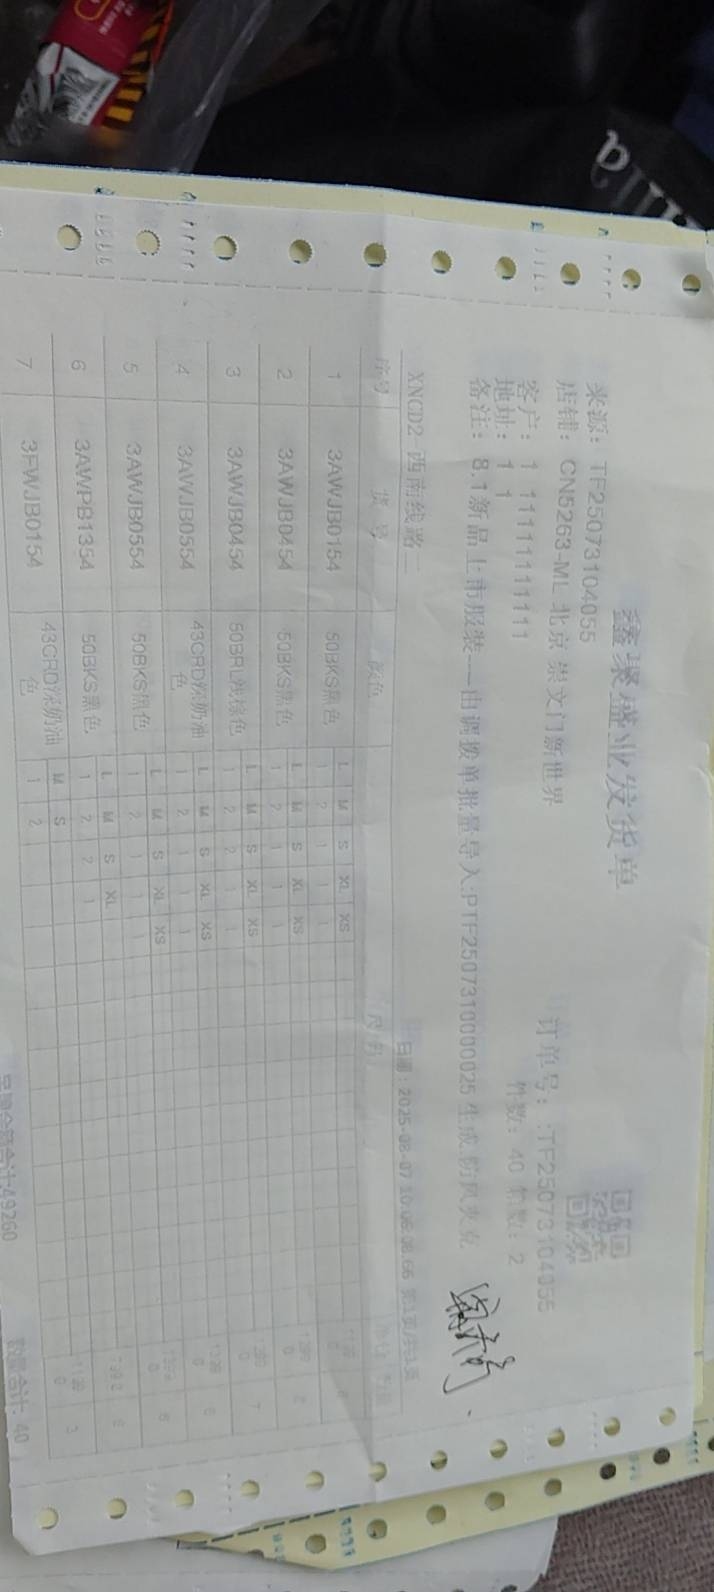 鑫聚盛业发货单
来源: TF25073104055
店铺: CN5263-ML 北京 崇文门新世界
订单号: :TF25073104055
客户: 1 11111111111
件数: 40 箱数: 2
地址: 1 1
备注: 8.1新品上市服装---由调拨单批量导入:PTF2507310000025 生成 防风夹克
XNCD2 西南线路二
日期: 2025-08-07 10:06:08.66 第1页/共1页
序号 货号 颜色 尺码
L M S XL XS
1 3AWJB0154 50BKS黑色 1 2 1 1 1
L M S XL XS
2 3AWJB0454 50BKS黑色 1 2 1 1 1
L M S XL XS
3 3AWJB0454 50BRL浅棕色 1 2 2 1 1 7
L M S XL XS
4 3AWJB0554 43CRD深奶油色 1 2 1 1 1 6
L M S XL XS
5 3AWJB0554 50BKS黑色 1 2 1 1 1 6
L M S XL
6 3AWPB1354 50BKS黑色 1 2 2 1 6
M S
7 3FWJB0154 43CRD深奶油色 1 2 3
吊牌金额合计:49260
数量合计: 40